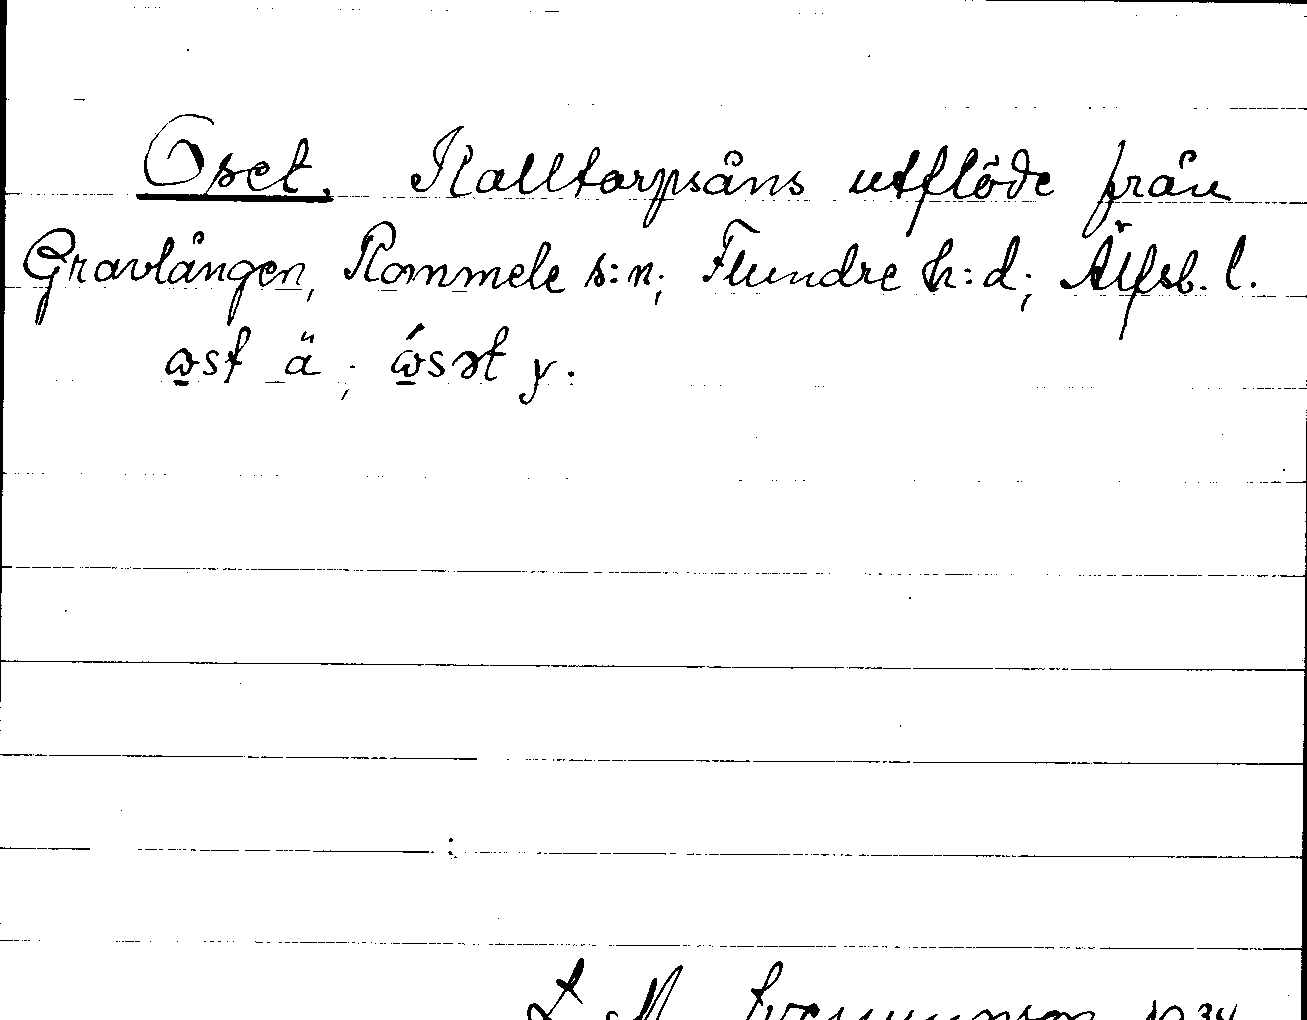 Oset. Kalltorpsåns utflöde från
Gravlången, Rommele s:n; Flundre h:d; Älfsb. l.
ɷst ä ; ɷ́sət y.